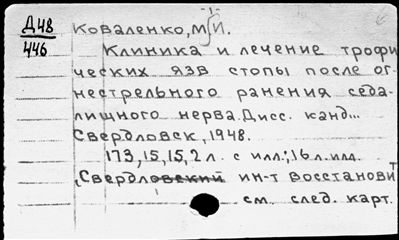 Д48
446
Коваленко, М.И.
Клиника и лечение трофи
ческих язв стопы после ог-
нестрельного ранения седа-
лищного нерва. Дисс. канд...
Свердловск, 1948.
173, 15, 15, 2 л. с илл.; 16 л. илл.
Свердловский ин-т восстановит
см. след. карт.